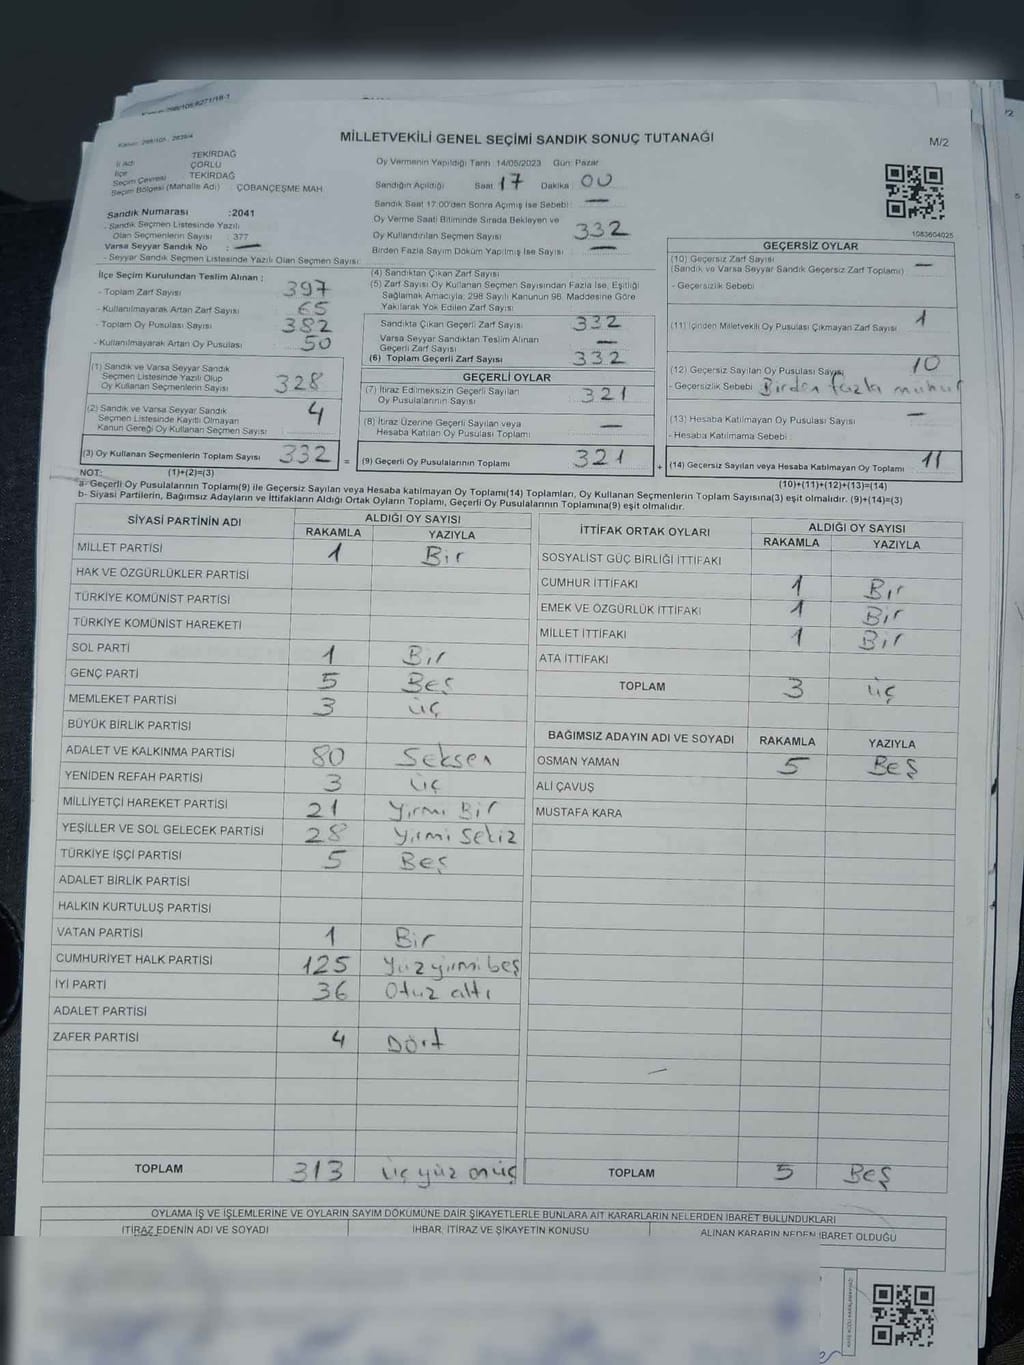 Kanun: 298/105 - 2839/4
MİLLETVEKİLİ GENEL SEÇİMİ SANDIK SONUÇ TUTANAĞI
M/2
İl Adı : TEKİRDAĞ
İlçe : ÇORLU
Seçim Çevresi : TEKİRDAĞ
Seçim Bölgesi (Mahalle Adı) : ÇOBANÇEŞME MAH
Oy Vermenin Yapıldığı Tarih :14/05/2023 Gün: Pazar
Sandığın Açıldığı Saat 17 Dakika : 00
Sandık Saat 17.00'den Sonra Açımış İse Sebebi : —
Oy Verme Saati Bitiminde Sırada Bekleyen ve
Oy Kullandırılan Seçmen Sayısı : 332
Birden Fazla Sayım Döküm Yapılmış İse Sayısı : —
1083604025
Sandık Numarası :2041
- Sandık Seçmen Listesinde Yazılı
Olan Seçmenlerin Sayısı : 377
Varsa Seyyar Sandık No : —
- Seyyar Sandık Seçmen Listesinde Yazılı Olan Seçmen Sayısı:
İlçe Seçim Kurulundan Teslim Alınan :
- Toplam Zarf Sayısı 397
- Kullanılmayarak Artan Zarf Sayısı 65
- Toplam Oy Pusulası Sayısı 382
- Kullanılmayarak Artan Oy Pusulası 50
(1) Sandık ve Varsa Seyyar Sandık
Seçmen Listesinde Yazılı Olup
Oy Kullanan Seçmenlerin Sayısı 328
(2) Sandık ve Varsa Seyyar Sandık
Seçmen Listesinde Kayıtlı Olmayan
Kanun Gereği Oy Kullanan Seçmen Sayısı : 4
(3) Oy Kullanan Seçmenlerin Toplam Sayısı 332 =
(4) Sandıktan Çıkan Zarf Sayısı :
(5) Zarf Sayısı Oy Kullanan Seçmen Sayısından Fazla İse, Eşitliği
Sağlamak Amacıyla, 298 Sayılı Kanunun 98. Maddesine Göre
Yakılarak Yok Edilen Zarf Sayısı :
Sandıkta Çıkan Geçerli Zarf Sayısı 332
Varsa Seyyar Sandıktan Teslim Alınan
Geçerli Zarf Sayısı —
(6) Toplam Geçerli Zarf Sayısı 332
GEÇERLİ OYLAR
(7) İtiraz Edilmeksizin Geçerli Sayılan
Oy Pusulalarının Sayısı : 321
(8) İtiraz Üzerine Geçerli Sayılan veya
Hesaba Katılan Oy Pusulası Toplamı : —
(9) Geçerli Oy Pusulalarının Toplamı 321 +
GEÇERSİZ OYLAR
(10) Geçersiz Zarf Sayısı
(Sandık ve Varsa Seyyar Sandık Geçersiz Zarf Toplamı) —
- Geçersizlik Sebebi :
(11) İçinden Milletvekili Oy Pusulası Çıkmayan Zarf Sayısı : 1
(12) Geçersiz Sayılan Oy Pusulası Sayısı 10
- Geçersizlik Sebebi : Birden fazla mühür
(13) Hesaba Katılmayan Oy Pusulası Sayısı : —
- Hesaba Katılmama Sebebi :
(14) Geçersiz Sayılan veya Hesaba Katılmayan Oy Toplamı 11
NOT: (1)+(2)=(3)
(10)+(11)+(12)+(13)=(14)
a- Geçerli Oy Pusulalarının Toplamı(9) ile Geçersiz Sayılan veya Hesaba katılmayan Oy Toplamı(14) Toplamları, Oy Kullanan Seçmenlerin Toplam Sayısına(3) eşit olmalıdır. (9)+(14)=(3)
b- Siyasi Partilerin, Bağımsız Adayların ve İttifakların Aldığı Ortak Oyların Toplamı, Geçerli Oy Pusulalarının Toplamına(9) eşit olmalıdır.
SİYASİ PARTİNİN ADI
ALDIĞI OY SAYISI
RAKAMLA YAZIYLA
MİLLET PARTİSİ 1 Bir
HAK VE ÖZGÜRLÜKLER PARTİSİ
TÜRKİYE KOMÜNİST PARTİSİ
TÜRKİYE KOMÜNİST HAREKETİ
SOL PARTİ 1 Bir
GENÇ PARTİ 5 Beş
MEMLEKET PARTİSİ 3 üç
BÜYÜK BİRLİK PARTİSİ
ADALET VE KALKINMA PARTİSİ 80 Seksen
YENİDEN REFAH PARTİSİ 3 üç
MİLLİYETÇİ HAREKET PARTİSİ 21 Yirmi Bir
YEŞİLLER VE SOL GELECEK PARTİSİ 28 Yirmi Sekiz
TÜRKİYE İŞÇİ PARTİSİ 5 Beş
ADALET BİRLİK PARTİSİ
HALKIN KURTULUŞ PARTİSİ
VATAN PARTİSİ 1 Bir
CUMHURİYET HALK PARTİSİ 125 Yüz yirmi beş
İYİ PARTİ 36 Otuz altı
ADALET PARTİSİ
ZAFER PARTİSİ 4 Dört
TOPLAM 313 üç yüz onüç
İTTİFAK ORTAK OYLARI
ALDIĞI OY SAYISI
RAKAMLA YAZIYLA
SOSYALİST GÜÇ BİRLİĞİ İTTİFAKI
CUMHUR İTTİFAKI 1 Bir
EMEK VE ÖZGÜRLÜK İTTİFAKI 1 Bir
MİLLET İTTİFAKI 1 Bir
ATA İTTİFAKI
TOPLAM 3 üç
BAĞIMSIZ ADAYIN ADI VE SOYADI RAKAMLA YAZIYLA
OSMAN YAMAN 5 Beş
ALİ ÇAVUŞ
MUSTAFA KARA
TOPLAM 5 Beş
OYLAMA İŞ VE İŞLEMLERİNE VE OYLARIN SAYIM DÖKÜMÜNE DAİR ŞİKAYETLERLE BUNLARA AİT KARARLARIN NELERDEN İBARET BULUNDUKLARI
İTİRAZ EDENİN ADI VE SOYADI
İHBAR, İTİRAZ VE ŞİKAYETİN KONUSU
ALINAN KARARIN NEDEN İBARET OLDUĞU